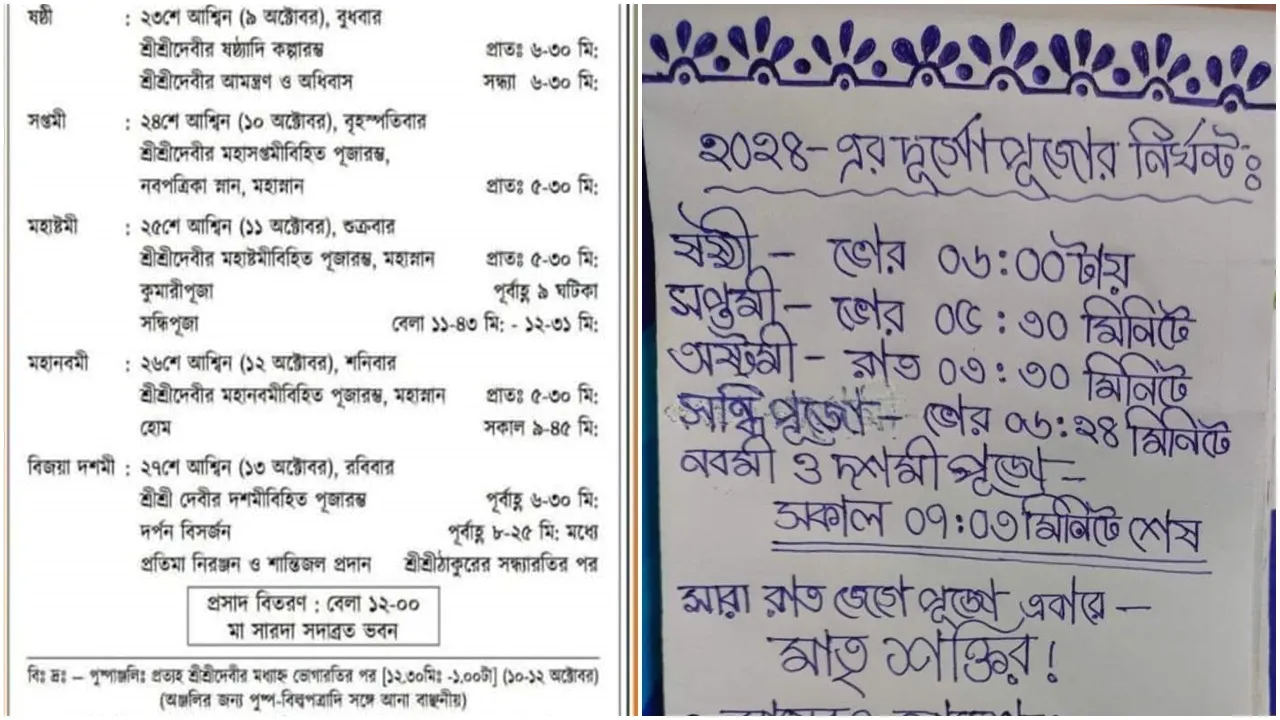 ষষ্ঠী : ২৩শে আশ্বিন (৯ অক্টোবর), বুধবার
শ্রীশ্রীদেবীর ষষ্ঠ্যাদি কল্পারম্ভ প্রাতঃ ৬-৩০ মি:
শ্রীশ্রীদেবীর আমন্ত্রণ ও অধিবাস সন্ধ্যা ৬-৩০ মি:
সপ্তমী : ২৪শে আশ্বিন (১০ অক্টোবর), বৃহস্পতিবার
শ্রীশ্রীদেবীর মহাসপ্তমীবিহিত পূজারম্ভ,
নবপত্রিকা স্নান, মহাস্নান প্রাতঃ ৫-৩০ মি:
মহাষ্টমী : ২৫শে আশ্বিন (১১ অক্টোবর), শুক্রবার
শ্রীশ্রীদেবীর মহাষ্টমীবিহিত পূজারম্ভ, মহাস্নান প্রাতঃ ৫-৩০ মি:
কুমারীপূজা পূর্বাহ্ণ ৯ ঘটিকা
সন্ধিপূজা বেলা ১১-৪৩ মি: - ১২-৩১ মি:
মহানবমী : ২৬শে আশ্বিন (১২ অক্টোবর), শনিবার
শ্রীশ্রীদেবীর মহানবমীবিহিত পূজারম্ভ, মহাস্নান প্রাতঃ ৫-৩০ মি:
হোম সকাল ৯-৪৫ মি:
বিজয়া দশমী : ২৭শে আশ্বিন (১৩ অক্টোবর), রবিবার
শ্রীশ্রী দেবীর দশমীবিহিত পূজারম্ভ পূর্বাহ্ণ ৬-৩০ মি:
দর্পন বিসর্জন পূর্বাহ্ণ ৮-২৫ মি: মধ্যে
প্রতিমা নিরঞ্জন ও শান্তিজল প্রদান শ্রীশ্রীঠাকুরের সন্ধ্যারতির পর
প্রসাদ বিতরণ : বেলা ১২-০০
মা সারদা সদাব্রত ভবন
বিঃ দ্রঃ – পুষ্পাঞ্জলিঃ প্রত্যহ শ্রীশ্রীদেবীর মধ্যাহ্ন ভোগারতির পর [১২.৩০মিঃ -১.০০টা] (১০-১২ অক্টোবর)
(অঞ্জলির জন্য পুষ্প-বিল্বপত্রাদি সঙ্গে আনা বাঞ্ছনীয়)
২০২৪-এর দুর্গো পুজোর নির্ঘন্ট:
ষষ্ঠী – ভোর ০৬:০০টায়
সপ্তমী – ভোর ০৫:৩০ মিনিটে
অষ্টমী – রাত ০৩:৩০ মিনিটে
সন্ধি পুজো – ভোর ০৬:২৪ মিনিটে
নবমী ও দশমী পুজো –
সকাল ০৭:০৩ মিনিটে শেষ
সারা রাত জেগে পুজো এবারে –
মাতৃ শক্তির!